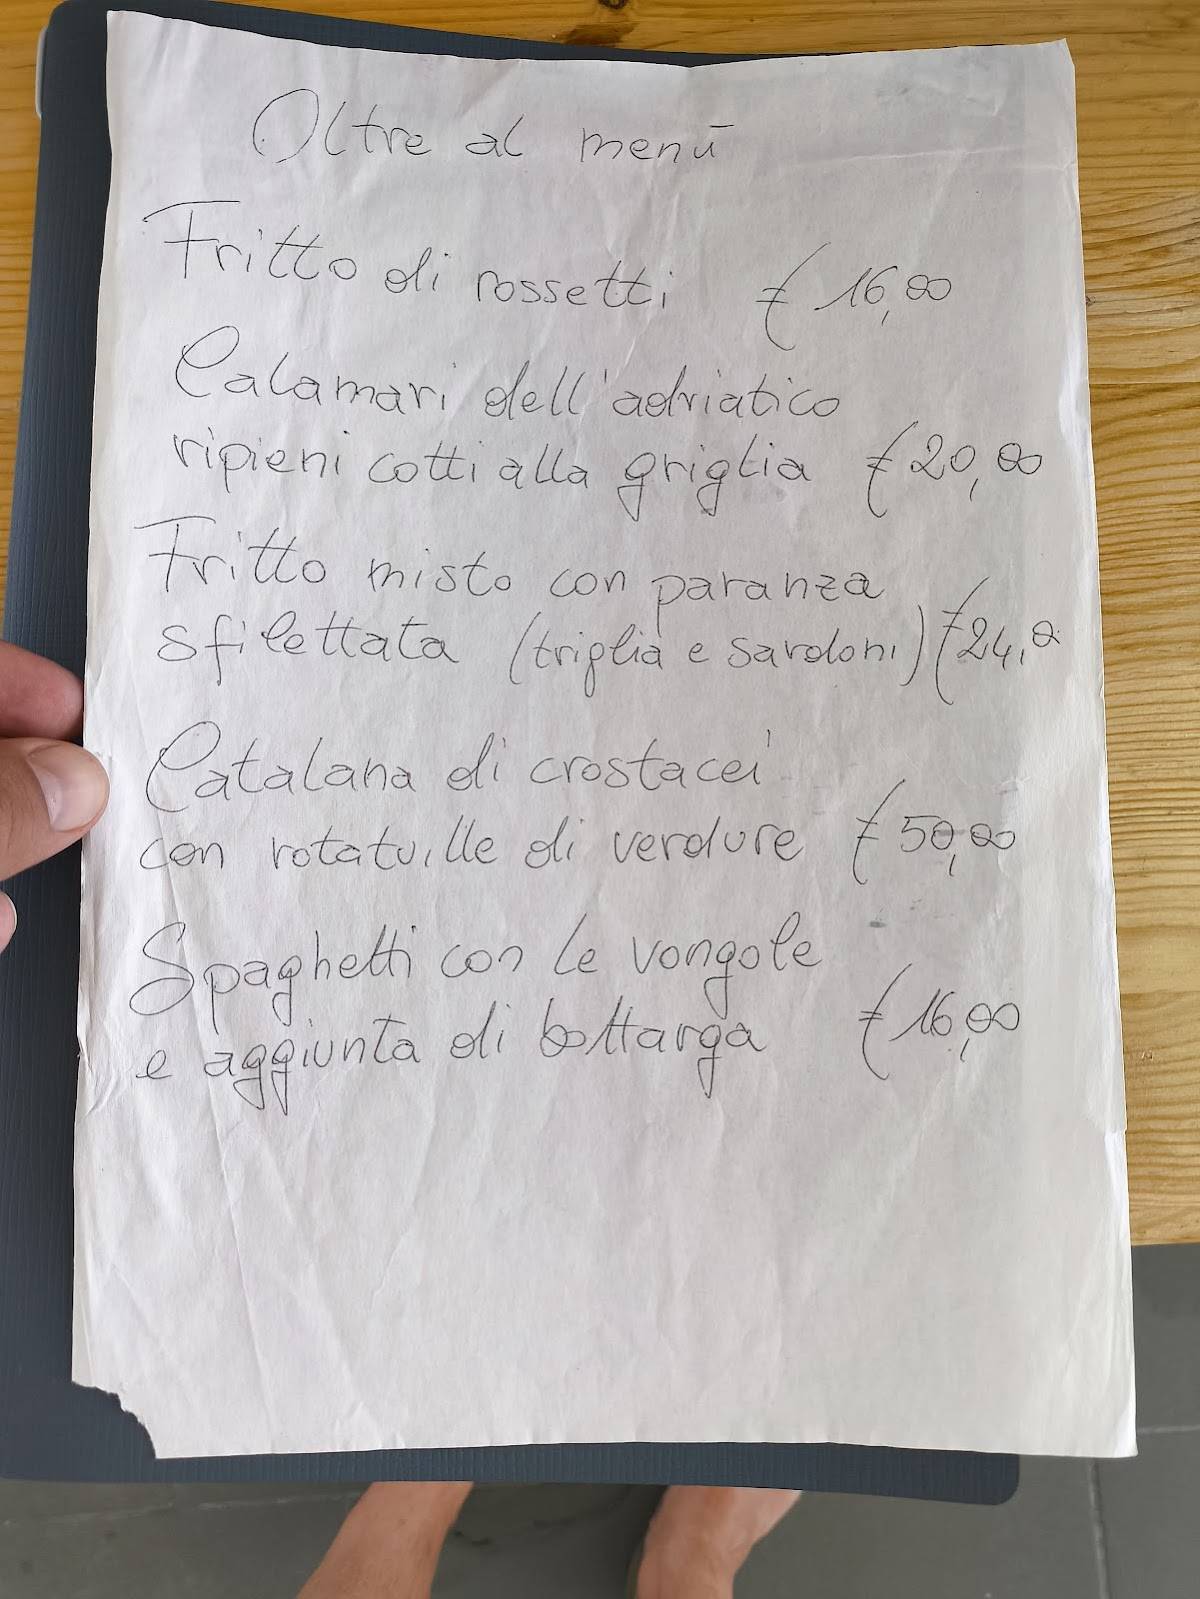 Oltre al menù
Fritto di rossetti € 16,00
Calamari dell'adriatico
ripieni cotti alla griglia € 20,00
Fritto misto con paranza
sfilettata (triglia e sardoni) € 24,0
Catalana di crostacei
con rotatuille di verdure € 50,00
Spaghetti con le vongole
e aggiunta di bottarga € 16,00